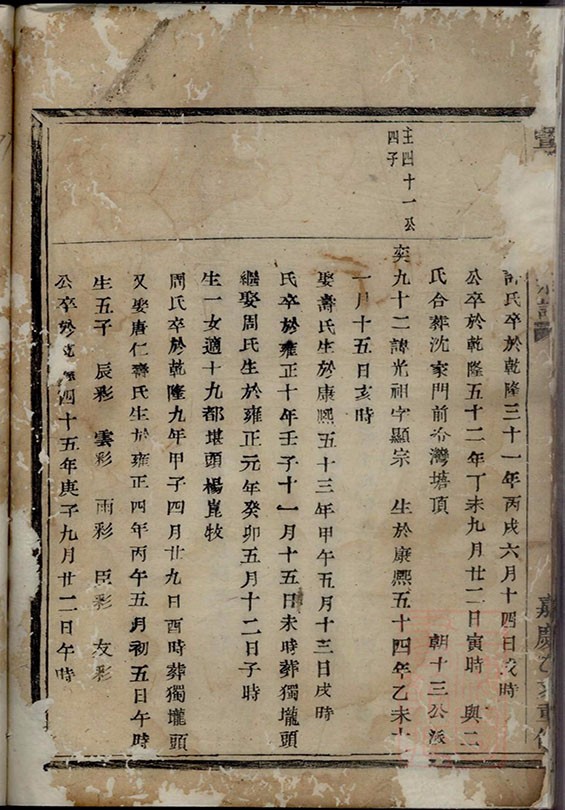 嘉慶乙亥重修
氏卒於乾隆三十一年丙戌六月十四日戌時
公卒於乾隆五十二年丁未九月廿二日寅時 與二
氏合葬沈家門前冷灣塘頂 朝十三公派
主四十一公
四子
奕九十二諱光祖字顯宗 生於康熙五十四年乙未十
一月十五日亥時
娶壽氏生於康熙五十三年甲午五月十三日戌時
氏卒於雍正十年壬子十一月十五日未時葬獨壠頭
繼娶周氏生於雍正元年癸卯五月十二日子時
生一女適十九都堪頭楊崑牧
周氏卒於乾隆九年甲子四月廿九日酉時葬獨壠頭
又娶唐仁齊氏生於雍正四年丙午五月初五日午時
生五子 辰彩 雲彩 雨彩 臣彩 友彩
公卒於乾隆四十五年庚子九月廿二日午時